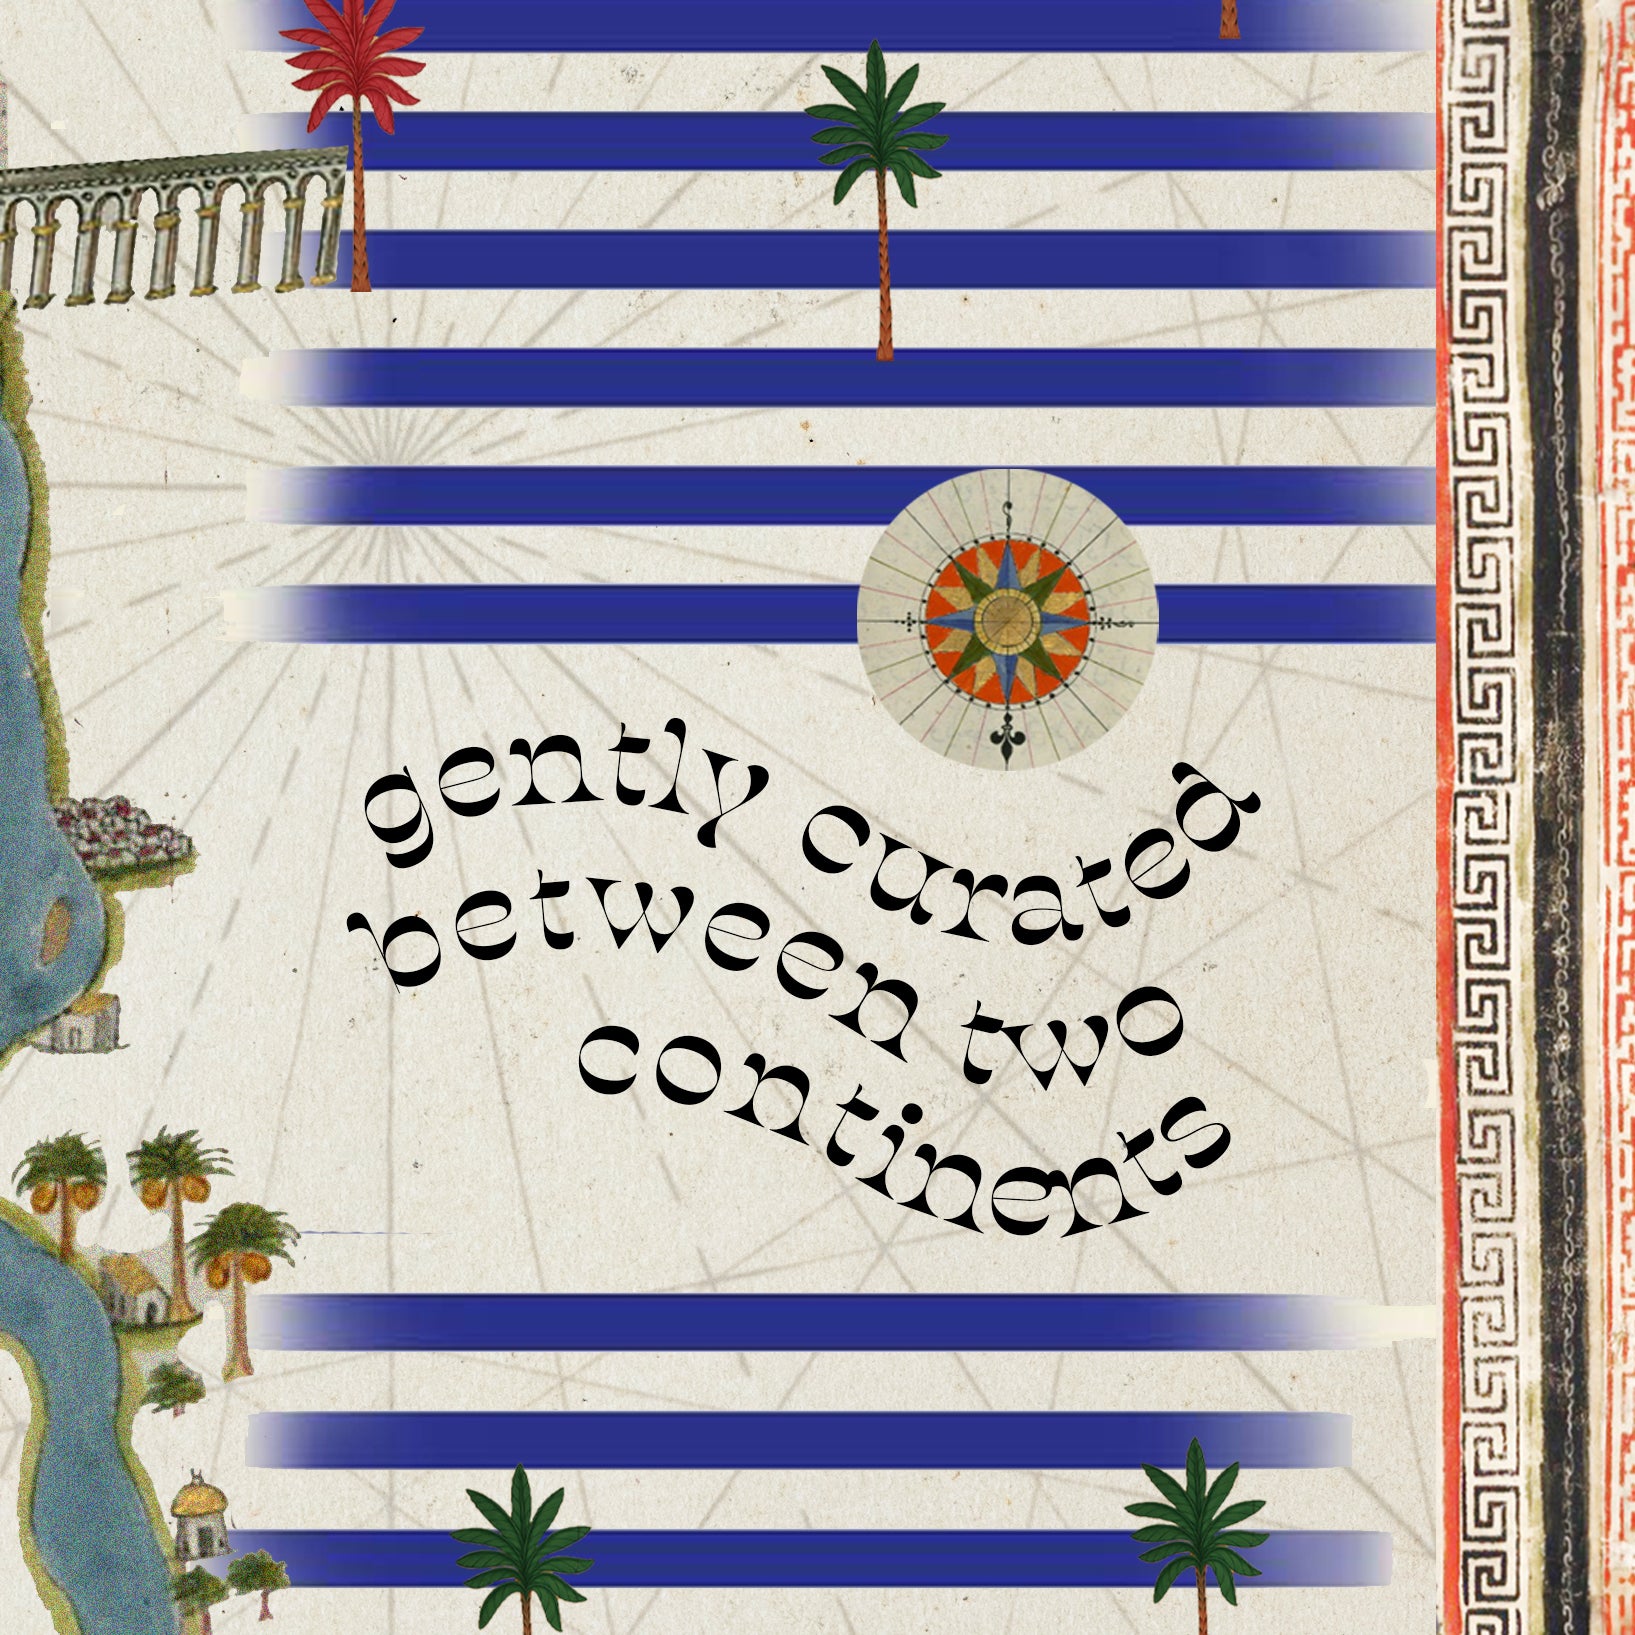 gently curated
between two
continents